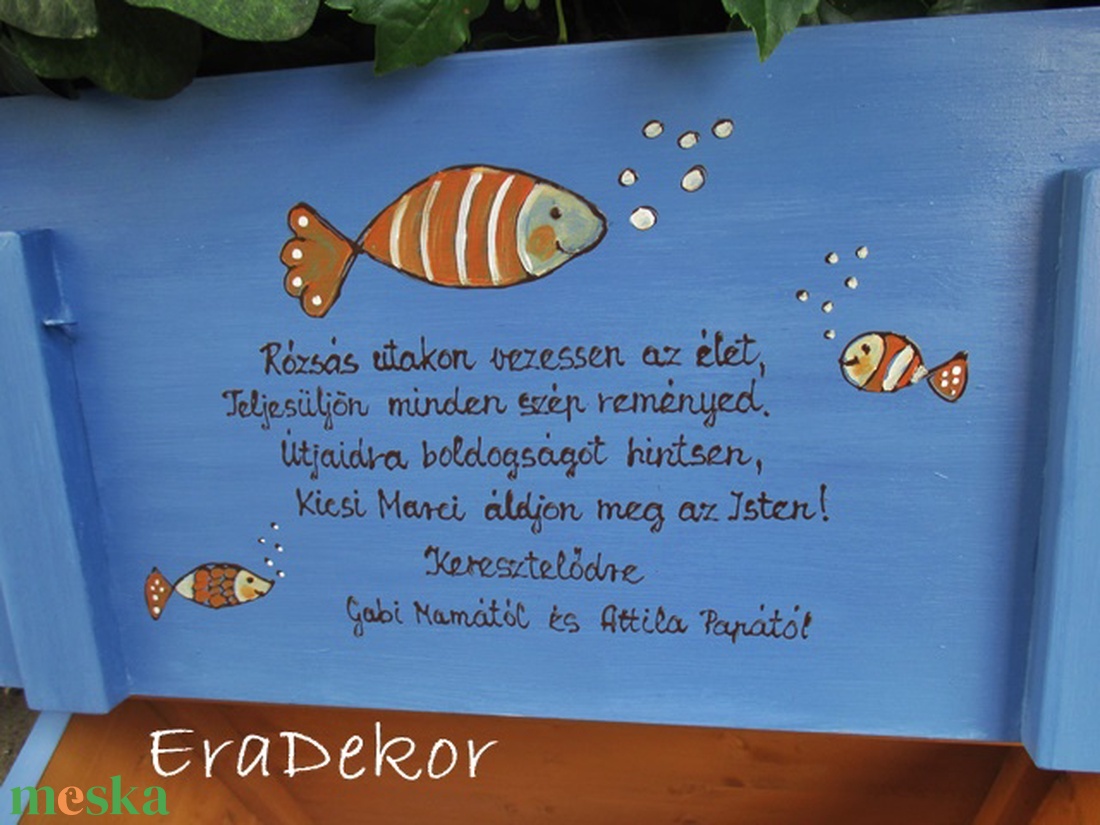 Rózsás utakon vezessen az élet,
Teljesüljön minden szép reményed.
Útjaidra boldogságot hintsen,
Kicsi Marci áldjon meg az Isten!
Keresztelődre
Gabi Mamától és Attila Papától
EraDekor
meska